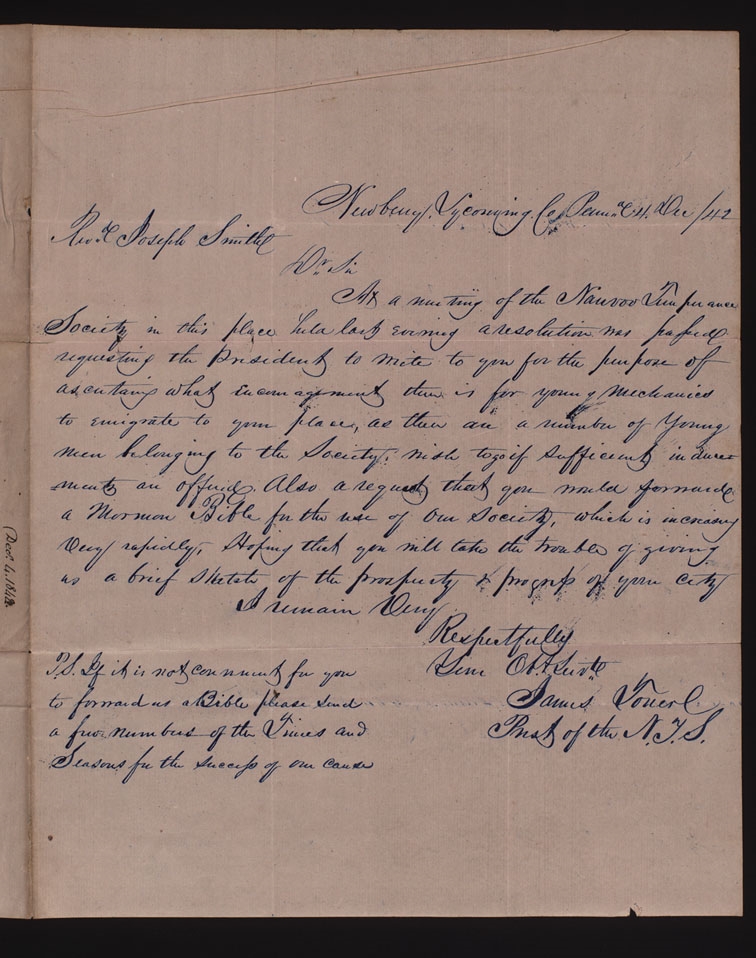 Newbery, Lycoming Co, Penna. 4. Dec /42
Revd Joseph Smith
Dr Sir
At a meeting of the Nauvoo Temperance
Society in this place held last evening a resolution was passed
requesting the President to write to you for the purpose of
ascertaing what Encouragement there is for young Mechanics
to emigrate to your place, as there are a number of Young
men belonging to the Society, wish to go if sufficient induce-
ments are offered. Also a request that you would forward
a Mormon Bible for the use of our Society, which is increasing
Very rapidly, Hoping that you will take the trouble of giving
us a brief sketch of the prosperity & progress of your city
I remain Very
Respectfully
Your Obt Servt
James
Prest of the N.T.S.
P.S. If it is not convenient for you
to forward us a Bible please send
a few numbers of the Times and
Seasons for the success of our cause
Dec. 4. 1842.